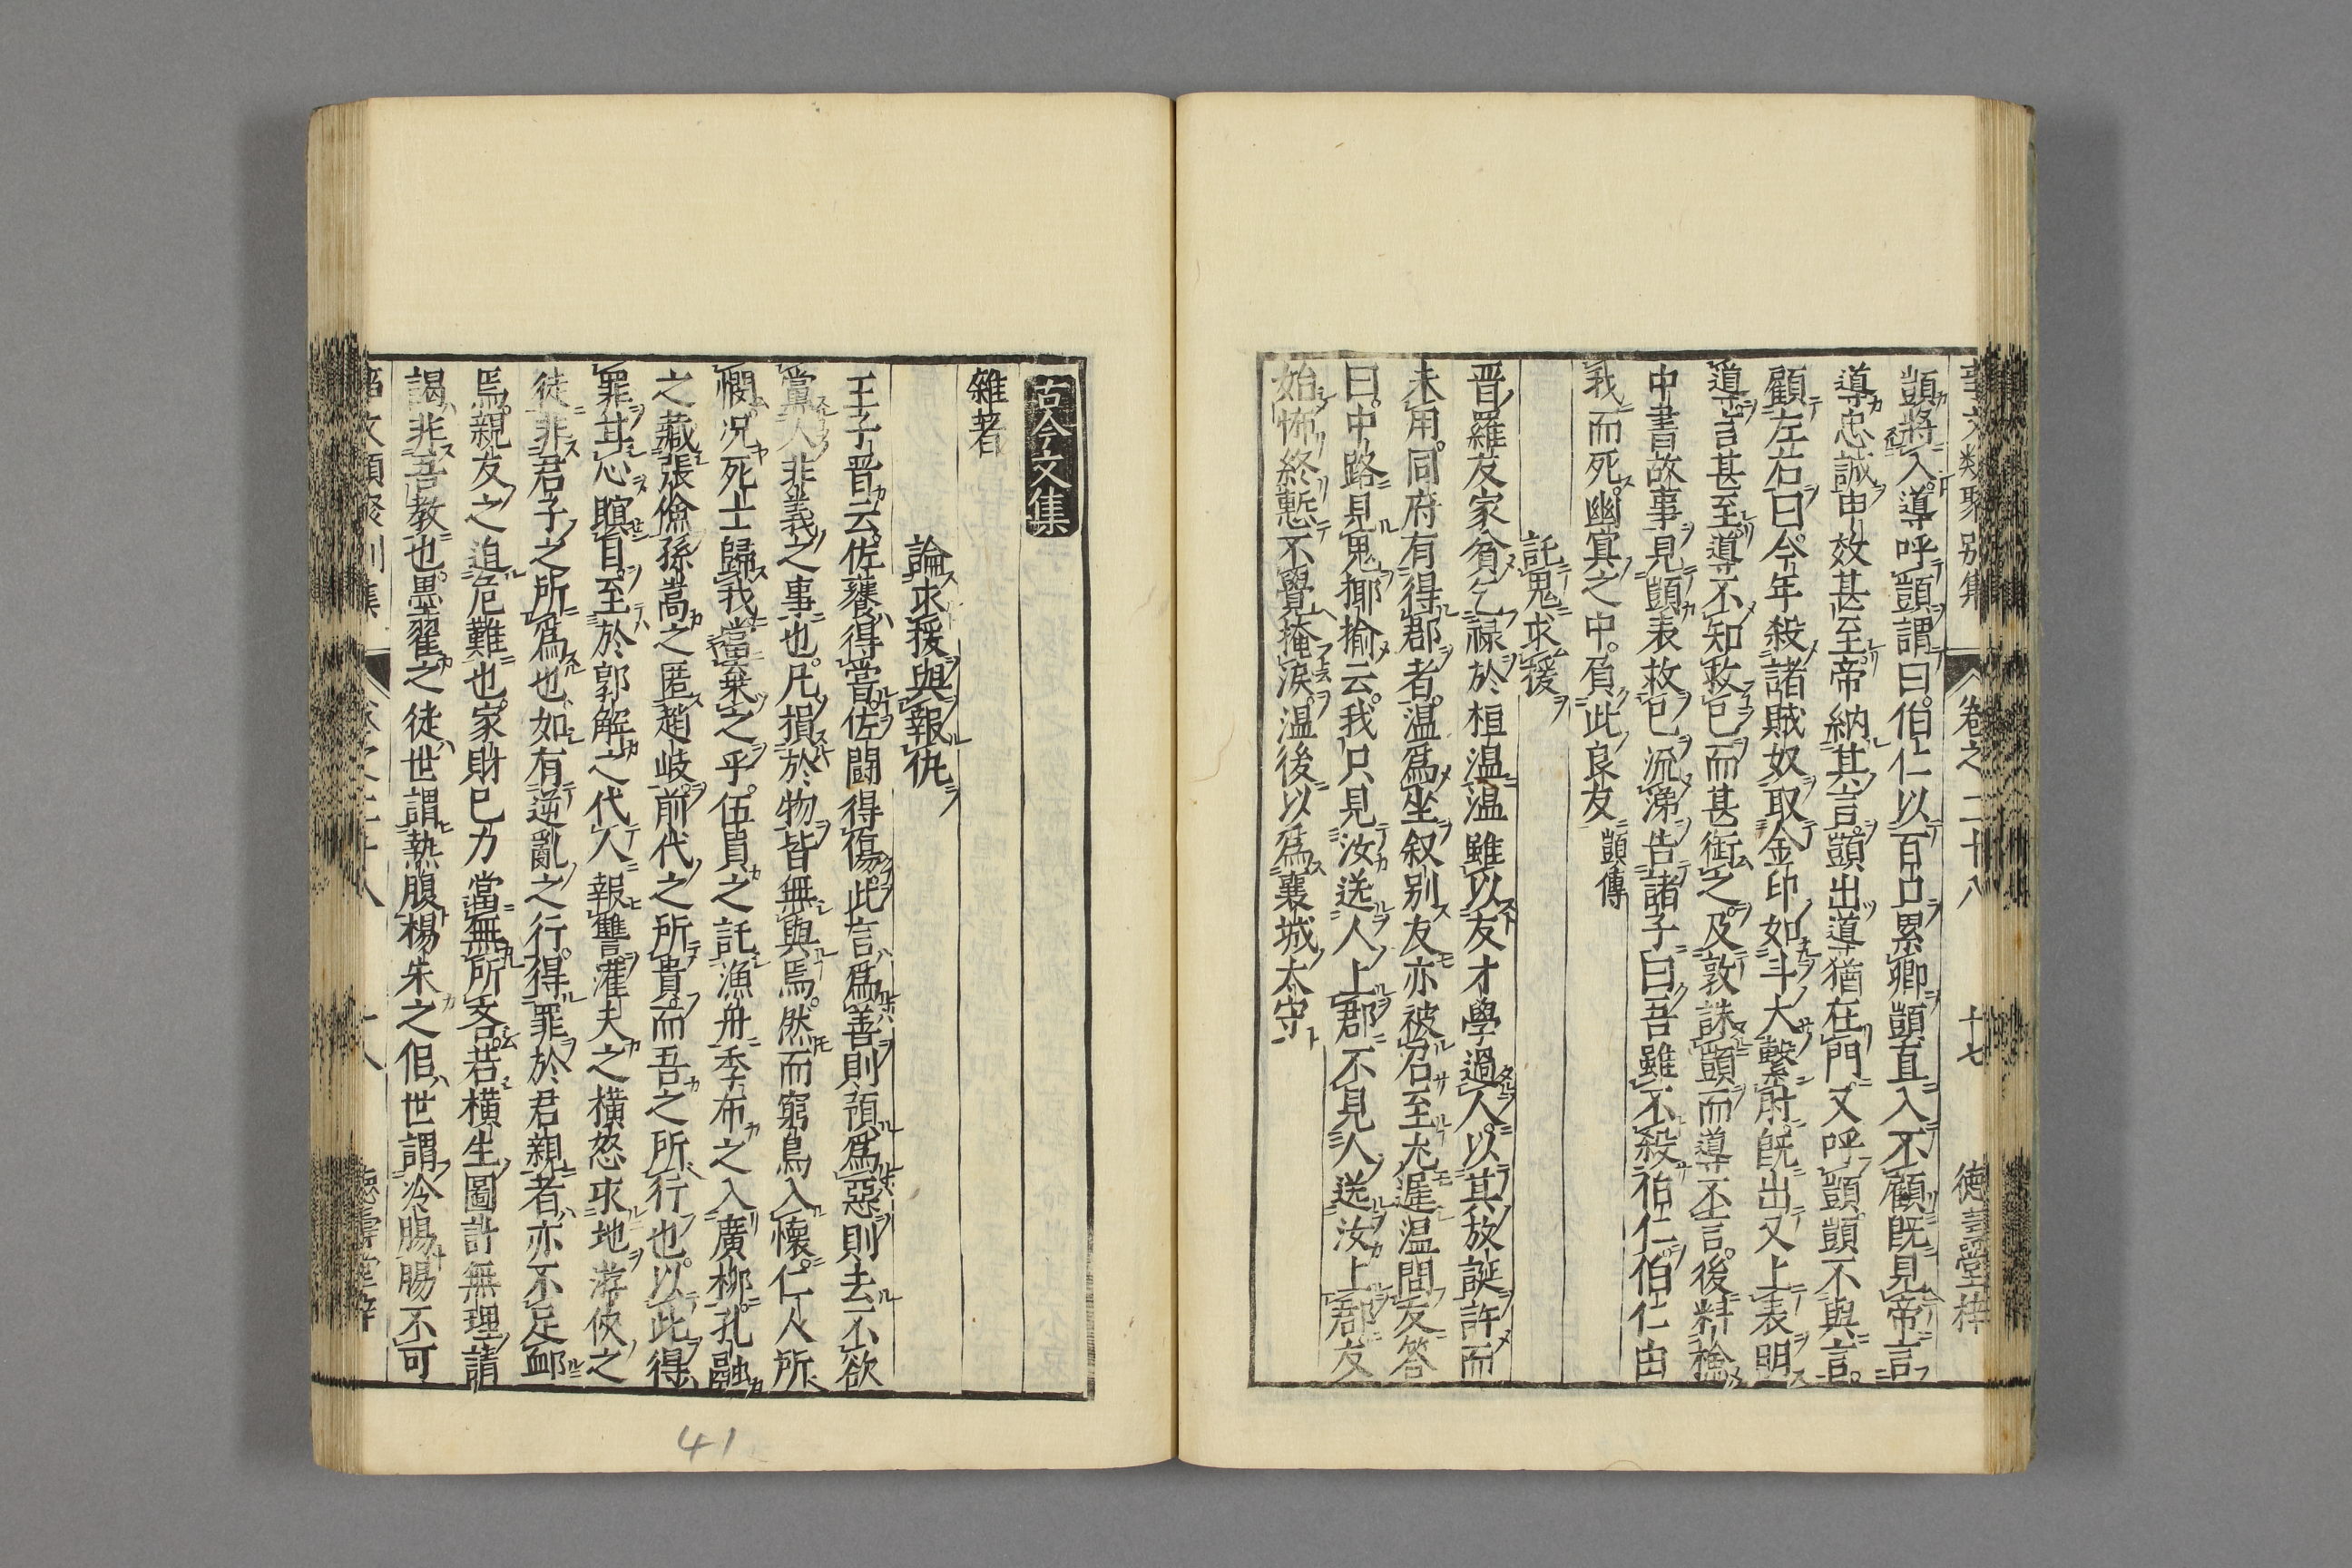 事文類聚别集 卷之二十八 十七 德壽堂梓
顗將入導呼顗謂曰伯仁以百口累卿顗直入不顧既見帝言
導忠誠申效甚至帝納其言顗出導猶在門又呼顗顗不與言
顧左右曰今年殺諸賊奴取金印如斗大繫肘既出又上表明
導言甚至導不知救已而甚銜之及敦誅顗而導不言後料檢
中書故事見顗表救已流涕告諸子曰吾雖不殺伯仁伯仁由
我而死幽冥之中負此良友 顗傳
託鬼求援
晋羅友家貧乞禄於桓温温雖以友才學過人以其放誕許而
未用同府有得郡者温爲坐叙别友亦被召至尤遲温問友答
曰中路見鬼揶揄云我只見汝送人上郡不見人送汝上郡友
始怖終慙不覺掩淚温後以爲襄城太守
古今文集
雜著
論求援與報仇
王子晋云佐饔得嘗佐鬪得傷此言爲善則預爲惡則去不欲
黨人非義之事也凡損於物皆無與焉然而窮鳥入懷仁人所
憫况死士歸我當棄之乎伍貟之託漁舟季布之入廣柳孔融
之藏張儉孫嵩之匿趙岐前代之所貴而吾之所行也以此得
罪甘心瞑目至於郭解之代人報讐灌夫之横怒求地游俠之
徒非君子之所爲也如有逆亂之行得罪於君親者亦不足䘏
焉親友之迫危難也家財已力當無所吝若横生圖計無理請
謁非吾教也墨翟之徒世謂熱腹楊朱之侶世謂冷腸腸不可